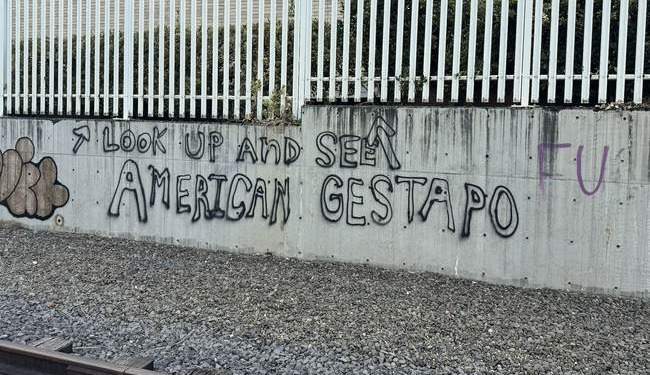 LOOK UP AND SEE
AMERICAN GESTAPO
FU